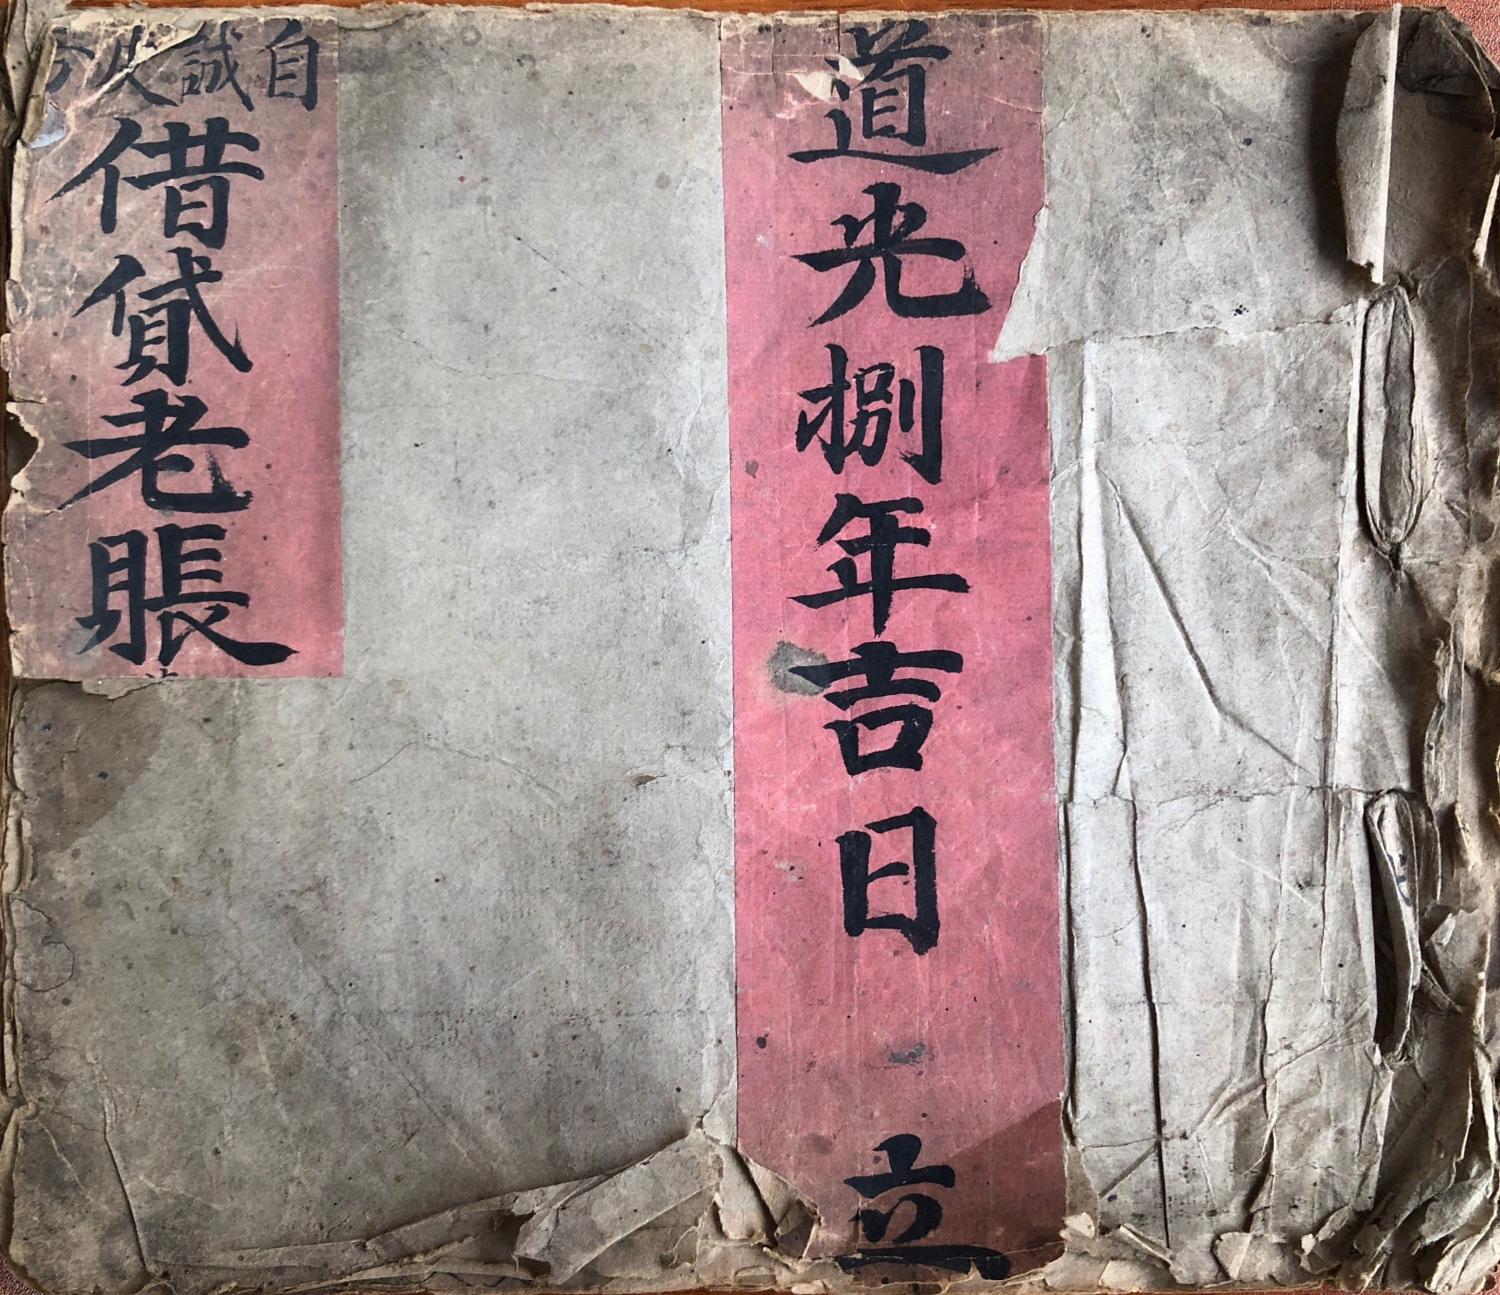 道光捌年吉日 立
自誠
借貸老賬